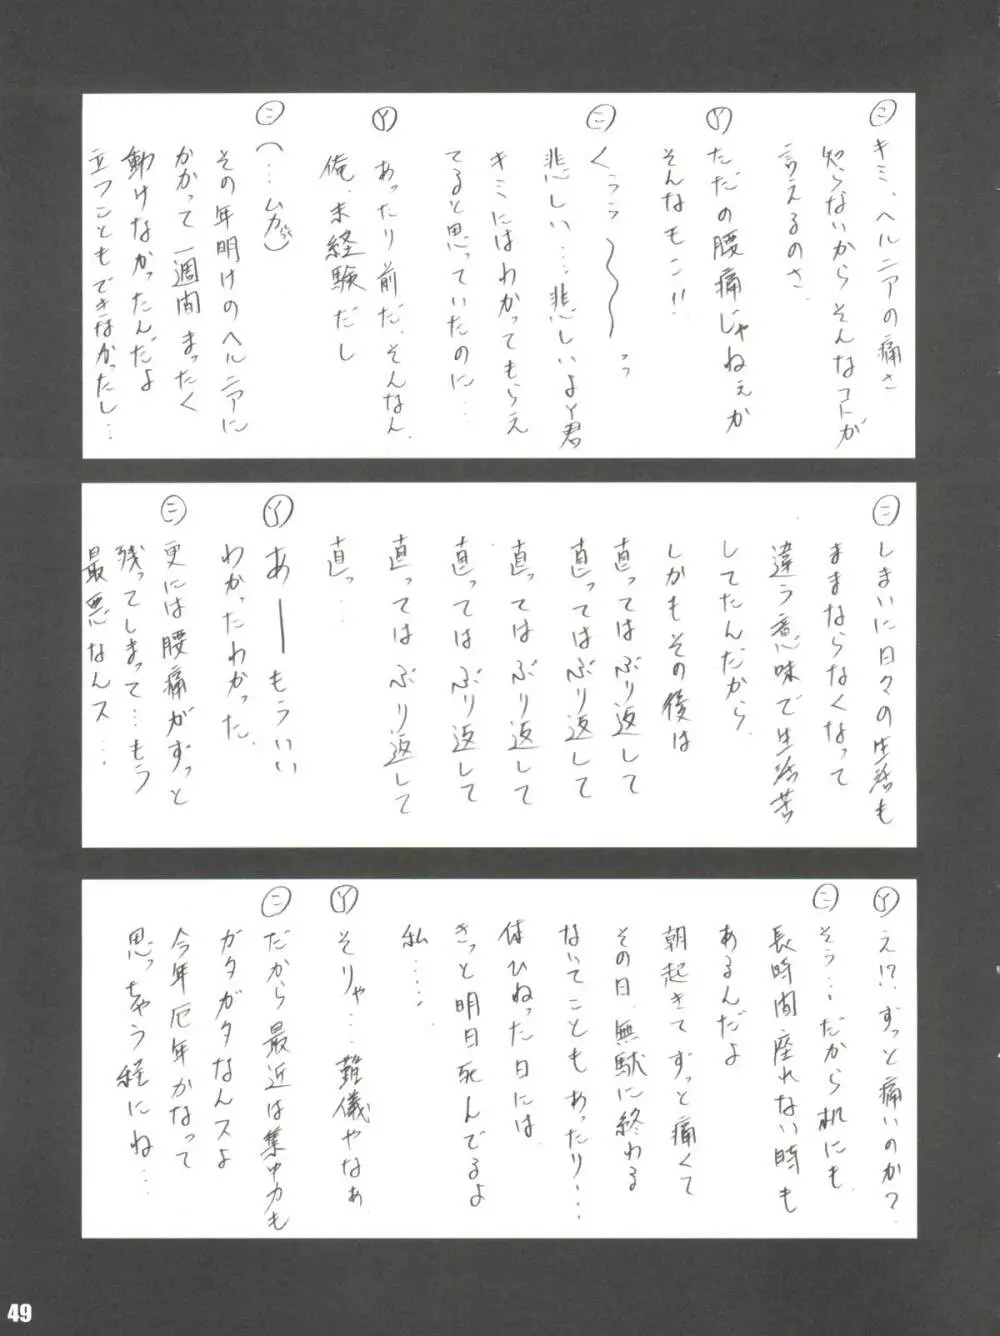 ㊁ キミ、ヘルニアの痛さ
知らないからそんなコトが
言えるのさ.
Ⓨ ただの腰痛じゃねぇか
そんなもこ!!
㊁ くううう〜〜〜っっ
悲しい…悲しいよY君
キミにはわかってもらえ
てると思っていたのに…
Ⓨ あったり前だ.そんなん.
俺、未経験だし
㊁ (…ムカ)
その年明けのヘルニアに
かかって一週間まったく
動けなかったんだよ
立つこともできなかったし…
㊁ しまいに日々の生活も
ままならなくなって
違う意味で生活苦
してたんだから.
しかもその後は
直ってはぶり返して
直ってはぶり返して
直ってはぶり返して
直ってはぶり返して
直ってはぶり返して
直っ…
Ⓨ あ──もういい
わかったわかった.
㊁ 更には腰痛がずっと
残ってしまって…もう
最悪なんス…
Ⓨ え!?ずっと痛いのか?
㊁ そう…だから机にも.
長時間座れない時も
あるんだよ
朝起きてずっと痛くて
その日.無駄に終わる
なんてこともあったり…
体ひねった日には.
きっと明日死んでるよ
私……
Ⓨ そりゃ…難儀やなぁ
㊁ だから最近は集中力も
ガタガタなんスよ
今年厄年かなって
思っちゃう程にね…
49